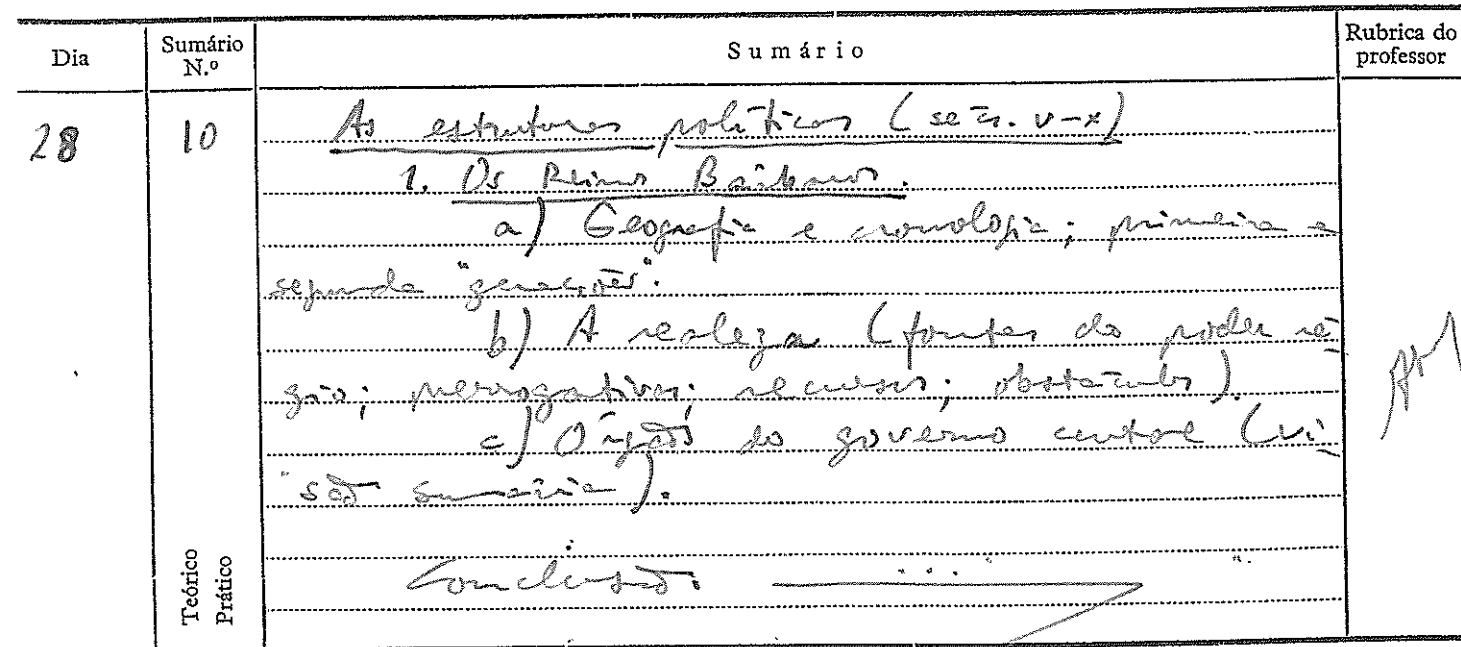 Dia
Sumário N.º
Sumário
Rubrica do professor
28
10
As estruturas políticas (sécs. V-X)
1. Os Reinos Bárbaros.
a) Geografia e cronologia; primeira e
segunda "gerações".
b) A realeza (fontes do poder ré-
gio; prerrogativas; recursos; obstáculos).
c) Órgãos do governo central (vi-
são sumária).
Conclusão.
Teórico
Prático